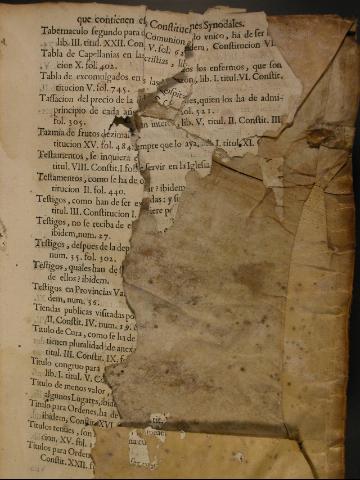 que contienen el Constituciones Synodales.
Tabernaculo segundo para Comunion lo vnico, ha de ser
lib. III. titul. XXII. Con V. fol. 62 idem, Constitucion VI.
Tabla de Capellanias en las cristias, lib.
cion X. fol. 402. los enfermos, que son
Tabla de excomulgados en s las con, lib. I. titul. VI. Constit.
titucion V. fol. 745. ospita
Tassacion del precio de la quien los ha de admi-
principio de cada añ ol. 521.
fol. 305. n interes, lib. V. titul. II. Constit. III.
Tazmia de frutos dezima
titucion XV. fol. 484. mpre que lo aya, I. titul. XI.
Testamentos, se inquiera
titul. VIII. Constit. I. fo servir en la Iglesia
Testamentos, como se ha d
titucion II. fol. 440. ? ibidem
Testigos, como han de ser
titul. III. Constitucion I.
Testigos, no se reciba de
ibidem, num. 27.
Testigos, despues de la dep
num. 35. fol. 302.
Testigos, quales han de
de ellos? ibidem.
Testigos en Provincias Va
dem, num. 36.
Tiendas publicas visitadas po
II. Constit. IV. num. 19.
Titulo de Cura, como se ha de
tienen pluralidad de anex
titul. III. Constit. IX. f
Titulo congruo para
lib. I. titul. V. C
Titulo de menos valor
algunos Lugares, ibid
Titulo para Ordenes, ha de
ibidem, Constit. XVI
Titulos tenues, son
cion, XV. fol.
Titulos para Ordenes
Constit. XXII. f